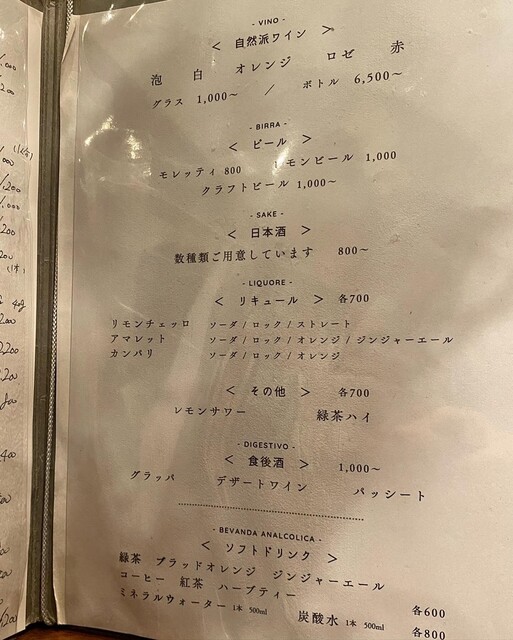 - VINO -
< 自然派ワイン >
泡 白 オレンジ ロゼ 赤
グラス 1,000~ / ボトル 6,500~
- BIRRA -
< ビール >
モレッティ 800 レモンビール 1,000
クラフトビール 1,000~
- SAKE -
< 日本酒 >
数種類ご用意しています 800~
- LIQUORE -
< リキュール > 各700
リモンチェッロ ソーダ / ロック / ストレート
アマレット ソーダ / ロック / オレンジ / ジンジャーエール
カンパリ ソーダ / ロック / オレンジ
< その他 > 各700
レモンサワー 緑茶ハイ
- DIGESTIVO -
< 食後酒 > 1,000~
グラッパ デザートワイン パッシート
- BEVANDA ANALCOLICA -
< ソフトドリンク >
緑茶 ブラッドオレンジ ジンジャーエール
コーヒー 紅茶 ハーブティー 各600
ミネラルウォーター 1本 500ml 炭酸水 1本 500ml 各800